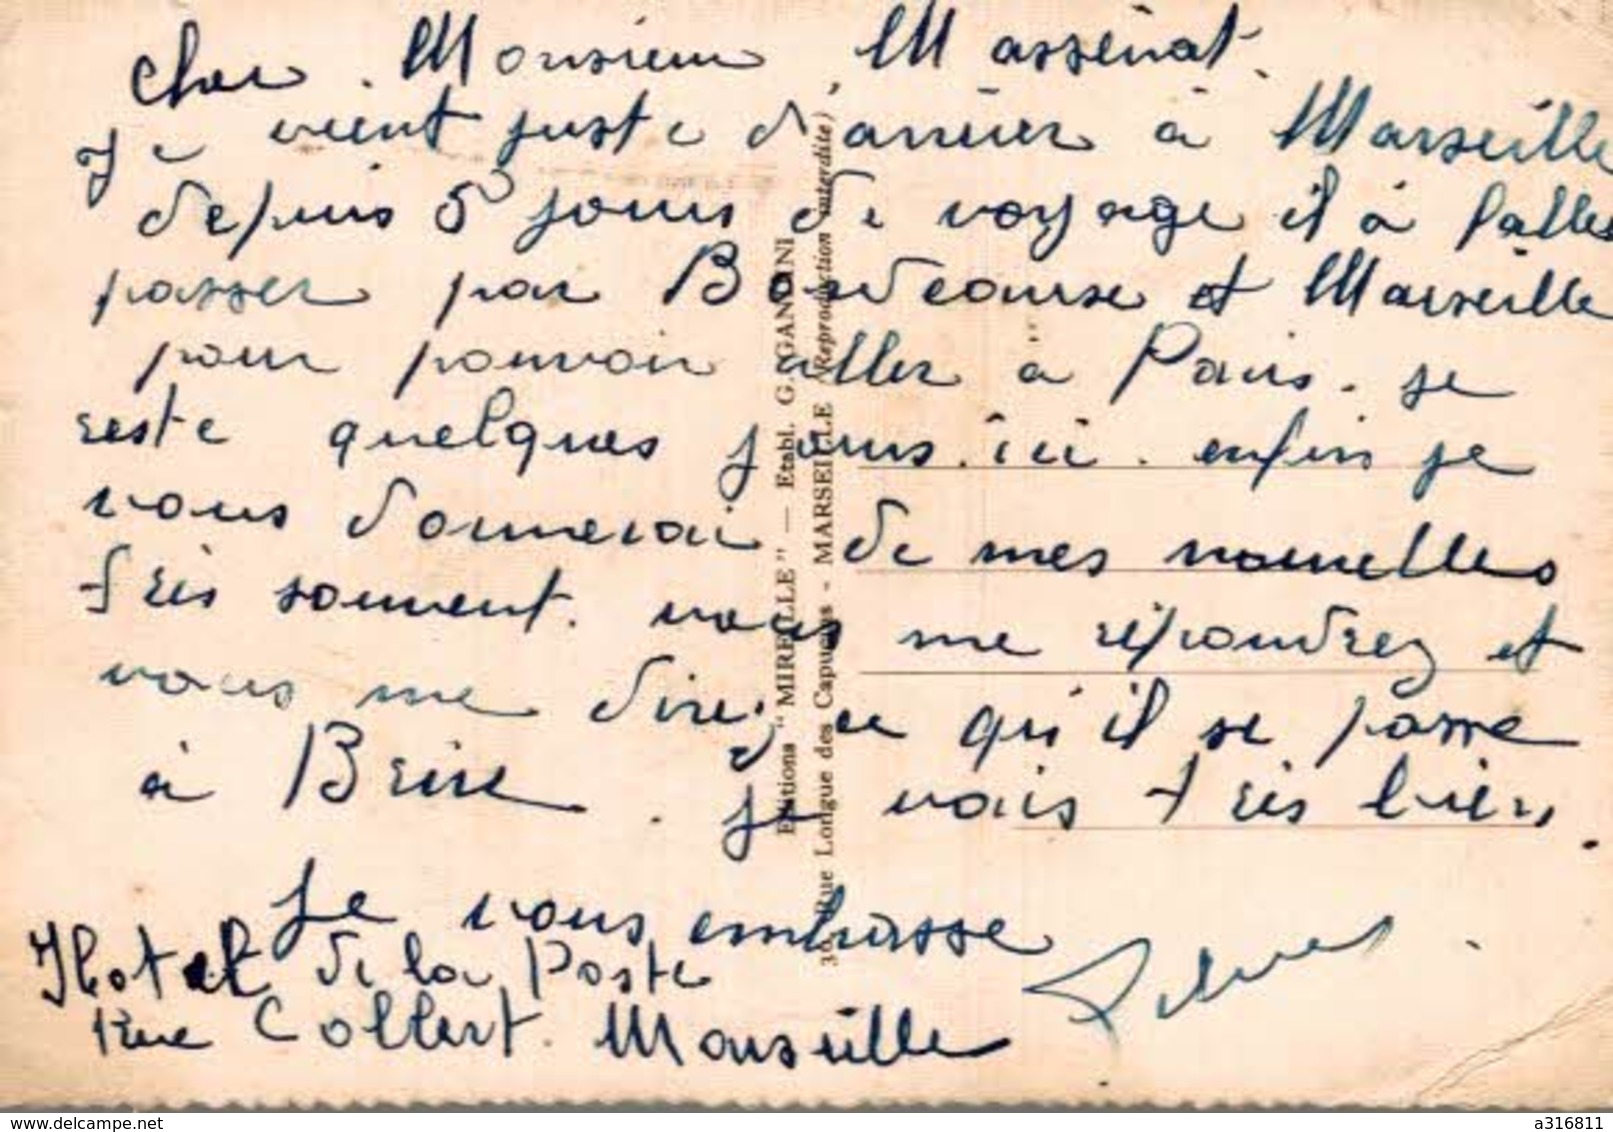 Cher Monsieur Massénat.
Je vient juste d'arriver à Marseille
depuis 5 jours de voyage il à faller
passer par Bordeause et Marseille
pour pouvoir aller à Paris. je
reste quelques jours. ici. enfin je
vous donnerai de mes nouvelles
très souvent. vous me répondrez et
vous me direz ce qu'il se passe
à Brive. je vais très bien.
Je vous embrasse
Hotel de la Poste
Rue Colbert. Marseille
Editions "MIREILLE" — Etabl. G. GANDINI
Rue Longue des Capucins - MARSEILLE (Reproduction interdite)
delcampe.net
a316811